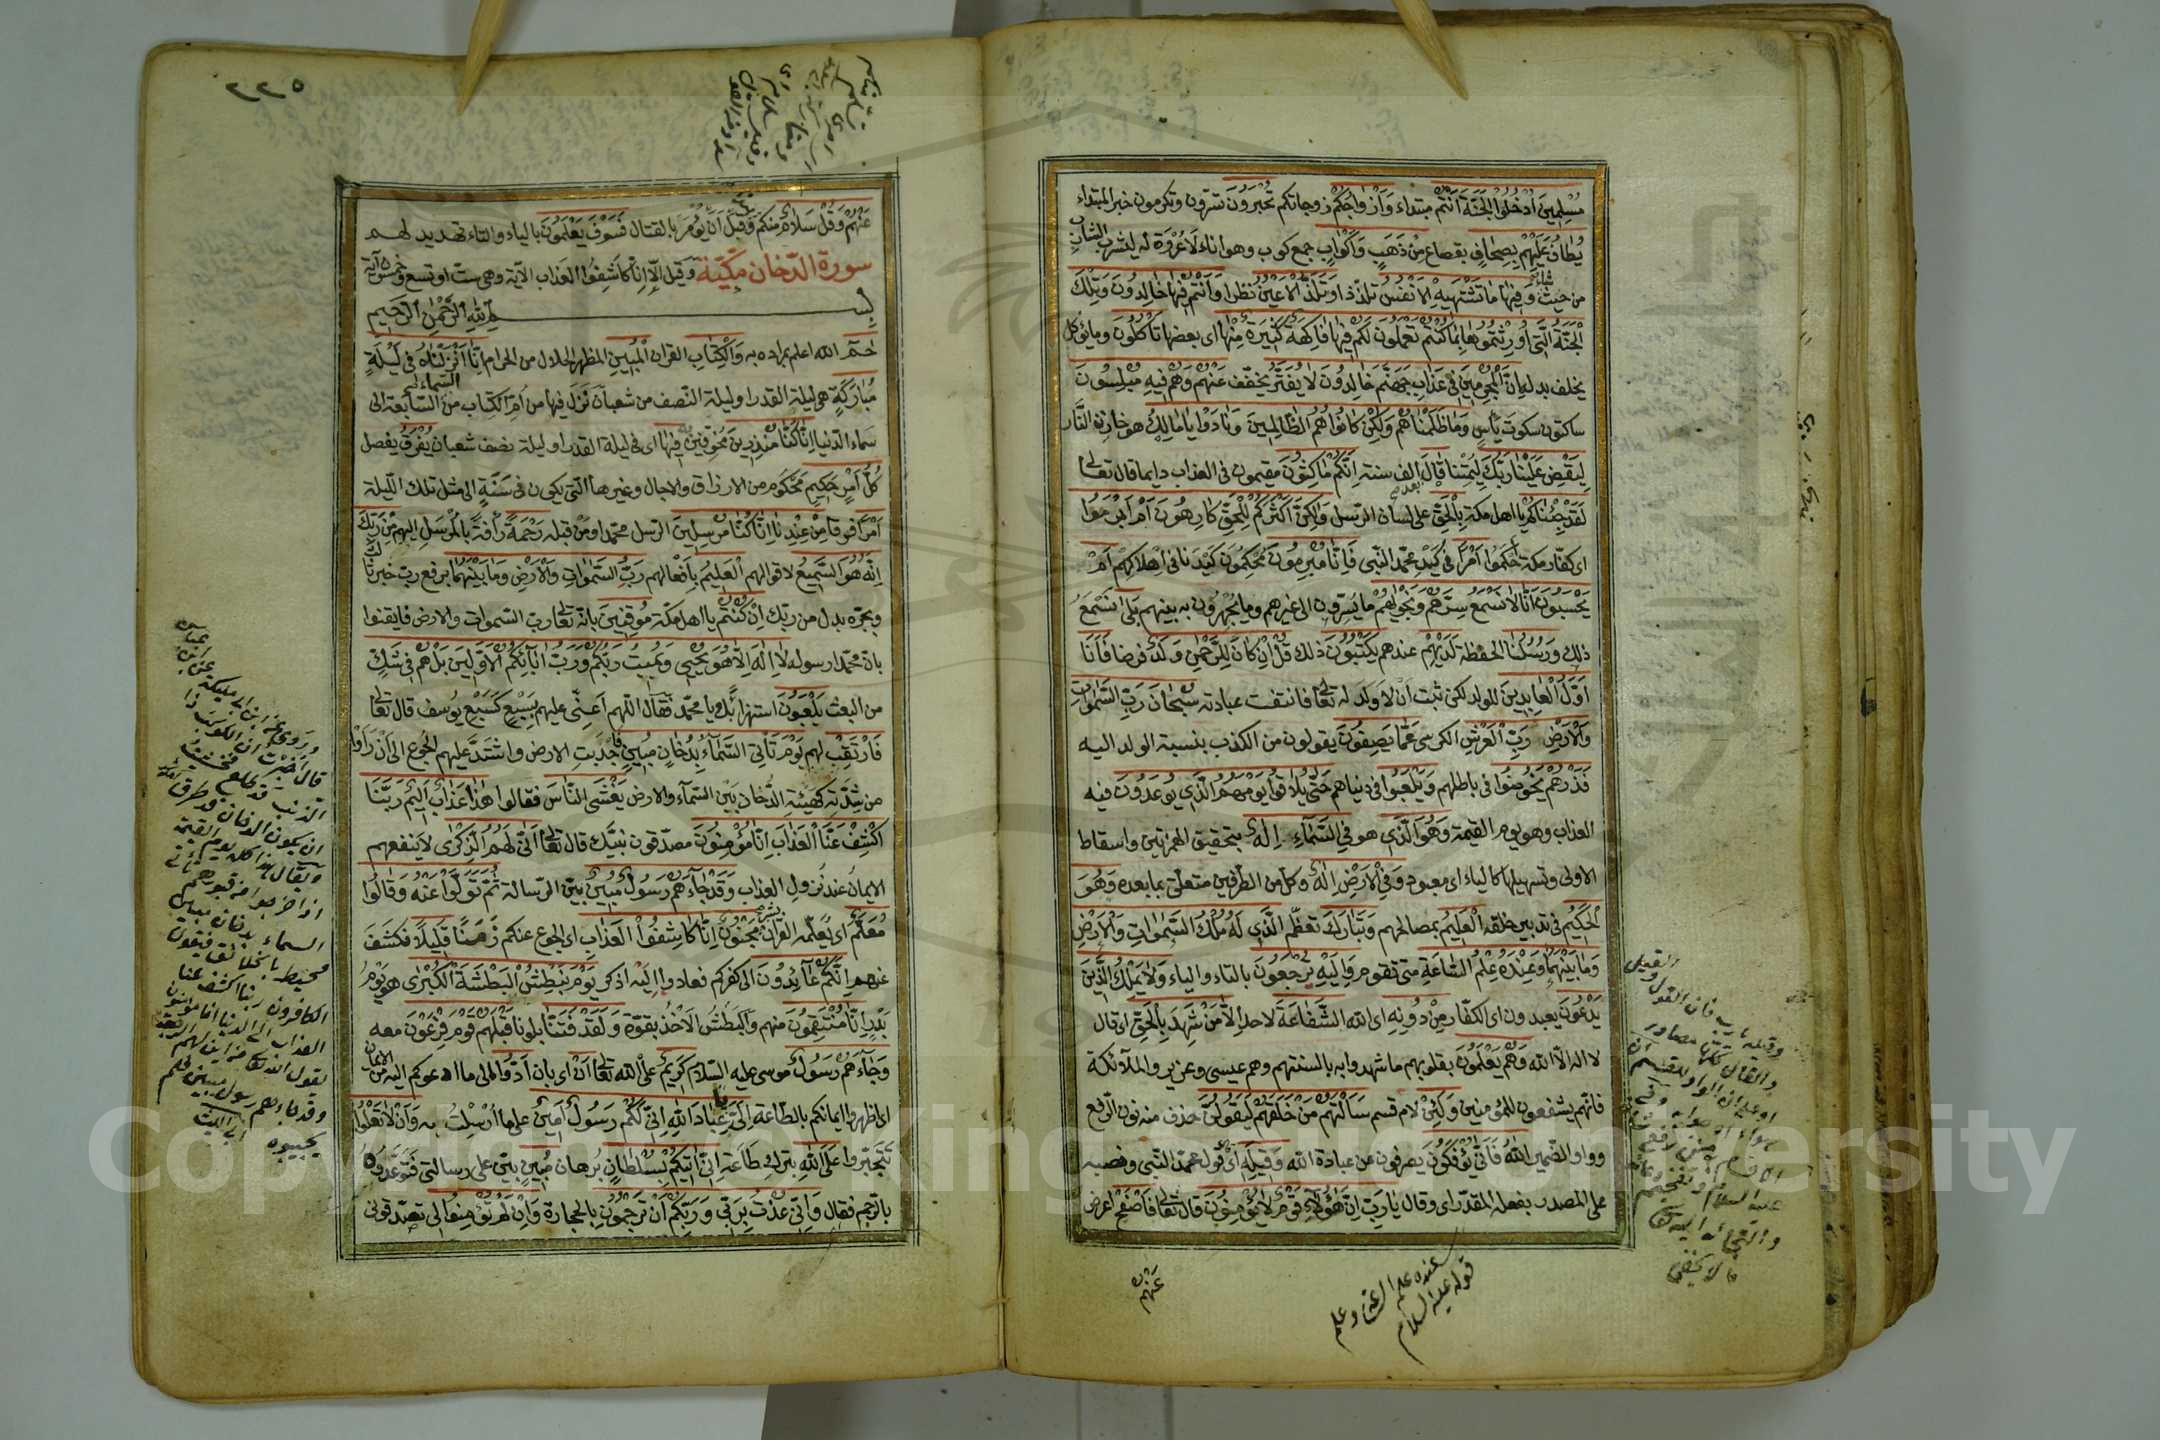 مُسْلِمِينَ اُدْخُلُوا الْجَنَّةَ اَنْتُمْ مبتداء وَاَزْوَاجُكُمْ زوجاتكم تُحْبَرُونَ تسرّون وتكرمون خبر المبتداء
يُطَافُ عَلَيْهِمْ بِصِحَافٍ بقصاع مِنْ ذَهَبٍ وَاَكْوَابٍ جمع كوب وهو اناء لا عُرْوَة له ليشرب الشارب
من حيث شاء وَفِيهَا مَا تَشْتَهِيهِ الْاَنْفُسُ تلذّذا وَتَلَذُّ الْاَعْيُنُ نظرا وَاَنْتُمْ فِيهَا خَالِدُونَ وَتِلْكَ
الْجَنَّةُ الَّتِي اُورِثْتُمُوهَا بِمَا كُنْتُمْ تَعْمَلُونَ لَكُمْ فِيهَا فَاكِهَةٌ كَثِيرَةٌ مِنْهَا اى بعضها تَأْكُلُونَ وما يؤكل
يخلف بدله اِنَّ الْمُجْرِمِينَ فِي عَذَابِ جَهَنَّمَ خَالِدُونَ لَا يُفَتَّرُ يخفّف عَنْهُمْ وَهُمْ فِيهِ مُبْلِسُونَ
ساكتون سكوت يأس وَمَا ظَلَمْنَاهُمْ وَلَكِنْ كَانُوا هُمُ الظَّالِمِينَ وَنَادَوْا يَا مَالِكُ هو خازن النّار
لِيَقْضِ عَلَيْنَا رَبُّكَ ليُمِتنا قَالَ بعد الف سنة اِنَّكُمْ مَاكِثُونَ مقيمون فى العذاب دايما قال تعالى
لَقَدْ جِئْنَاكُمْ يا اهل مكة بِالْحَقِّ على لسان الرّسل وَلَكِنَّ اَكْثَرَكُمْ لِلْحَقِّ كَارِهُونَ اَمْ اَبْرَمُوا
اى كفّار مكة احكموا اَمْرًا فى كيد محمّد النّبى فَاِنَّا مُبْرِمُونَ محكمون كيدنا فى اهلاكهم اَمْ
يَحْسَبُونَ اَنَّا لَا نَسْمَعُ سِرَّهُمْ وَنَجْوَاهُمْ ما يسرّون الى غيرهم وما يجهرون به بينهم بَلَى نسمع
ذلك وَرُسُلُنَا الحفظة لَدَيْهِمْ عندهم يَكْتُبُونَ ذلك قُلْ اِنْ كَانَ لِلرَّحْمٰنِ وَلَدٌ فرضا فَاَنَا
اَوَّلُ الْعَابِدِينَ للولد لكن ثبت اَنْ لا وَلَدَ له تعالى فانتفت عبادته سُبْحَانَ رَبِّ السَّمٰوَاتِ
وَالْاَرْضِ رَبِّ الْعَرْشِ الكرسى عَمَّا يَصِفُونَ يقولون من الكذب بنسبة الولد اليه
فَذَرْهُمْ يَخُوضُوا فى باطلهم وَيَلْعَبُوا فى دنياهم حَتَّى يُلَاقُوا يَوْمَهُمُ الَّذِي يُوعَدُونَ فيه
العذاب وهو يوم القيمة وَهُوَ الَّذِي هو فِي السَّمَاءِ اِلَهٌ بتحقيق الهمزتين واسقاط
الاولى وتسهيلها كالياء اى معبود وَفِي الْاَرْضِ اِلَهٌ وكلّ من الظّرفين متعلّق بما بعده وَهُوَ
الْحَكِيمُ فى تدبير خلقه الْعَلِيمُ بمصالحهم وَتَبَارَكَ تعظّم الَّذِي لَهُ مُلْكُ السَّمٰوَاتِ وَالْاَرْضِ
وَمَا بَيْنَهُمَا وَعِنْدَهُ عِلْمُ السَّاعَةِ متى تقوم وَاِلَيْهِ تُرْجَعُونَ بالتاء والياء وَلَا يَمْلِكُ الَّذِينَ
يَدْعُونَ يعبدون اى الكفّار مِنْ دُونِهِ اى الله الشَّفَاعَةَ لاحد اِلَّا مَنْ شَهِدَ بِالْحَقِّ اى قال
لا اله الّا الله وَهُمْ يَعْلَمُونَ بقلوبهم ما شهدوا به بالسنتهم وهم عيسى وعزير والملآئكة
فانّهم يشفعون للمؤمنين وَلَئِنْ لام قسم سَاَلْتَهُمْ مَنْ خَلَقَهُمْ لَيَقُولُنَّ حذف منه نون الرّفع
وواو الضّمير اللهُ فَاَنَّى يُؤْفَكُونَ يصرفون عن عبادة الله وَقِيلِهِ اى قول محمّد النّبى ونصبه
على المصدر بفعله المقدّر اى وقال يَا رَبِّ اِنَّ هٰؤُلَاءِ قَوْمٌ لَا يُؤْمِنُونَ قال تعالى فَاصْفَحْ اعرض
عَنْهُمْ
قوله عليه السلام
عنده علم الساعة وعلم
٢٢٥
عَنْهُمْ وَقُلْ سَلَامٌ منكم وَقبل اَن يُؤمر بالقتال فَسَوْفَ يَعْلَمُونَ بالياء والتاء تهديد لهم
سورة الدّخان مكيّة وقيل الّا اِنَّا كَاشِفُوا العذاب الآية وهى ستّ او تسع وخمسون آية
بسم الله الرّحمن الرّحيم
حٰم الله اعلم بمراده به وَالْكِتَابِ القرآن الْمُبِينِ المظهر الحلال من الحرام اِنَّا اَنْزَلْنَاهُ فِي لَيْلَةٍ
مُبَارَكَةٍ هى ليلة القدر او ليلة النّصف من شعبان نَزَلَ فيها من اُمّ الكتاب من السّماء السّابعة الى
سماء الدّنيا اِنَّا كُنَّا مُنْذِرِينَ مخوّفين به فِيهَا اى فى ليلة القدر او ليلة نصف شعبان يُفْرَقُ يفصل
كُلُّ اَمْرٍ حَكِيمٍ محكوم من الارزاق والاجال وغيرها الّتى يكون فى سَنَةٍ الى مثل تلك اللّيلة
اَمْرًا فرقا مِنْ عِنْدِنَا اِنَّا كُنَّا مُرْسِلِينَ الرّسل محمّدا ومَن قبله رَحْمَةً رأفةً بالمرسَل اليهم مِنْ رَبِّكَ
اِنَّهُ هُوَ السَّمِيعُ لاقوالهم الْعَلِيمُ بافعالهم رَبُّ السَّمٰوَاتِ وَالْاَرْضِ وَمَا بَيْنَهُمَا برفع ربّ خبر ثالث
وبجرّه بدل من ربّك اِنْ كُنْتُمْ يا اهل مكّة مُوقِنِينَ بانّه تعالى ربّ السّموات والارض فايقنوا
بانّ محمّدا رسوله لَا اِلٰهَ اِلَّا هُوَ يُحْيِي وَيُمِيتُ رَبُّكُمْ وَرَبُّ اٰبَائِكُمُ الْاَوَّلِينَ بَلْ هُمْ فِي شَكٍّ
من البعث يَلْعَبُونَ استهزاءً بك يا محمّد فقال اللّهم اَعِنّى عليهم بِسَبْعٍ كَسَبْعِ يُوسف قال تعالى
فَارْتَقِبْ لهم يَوْمَ تَأْتِي السَّمَاءُ بِدُخَانٍ مُبِينٍ فاجدبت الارض واشتدّ عليهم الجوع الى اَنْ رَاَوْا
من شدّته كهيئة الدّخان بين السّمآء والارض يَغْشَى النَّاسَ فقالوا هٰذَا عَذَابٌ اَلِيمٌ رَبَّنَا
اكْشِفْ عَنَّا الْعَذَابَ اِنَّا مُؤْمِنُونَ مصدّقون نبيّك قال تعالى اَنَّى لَهُمُ الذِّكْرَى لا ينفعهم
الايمانُ عند نزول العذاب وَقَدْ جَاءَهُمْ رَسُولٌ مُبِينٌ بيّن الرّسالة ثُمَّ تَوَلَّوْا عَنْهُ وَقَالُوا
مُعَلَّمٌ اى يُعلّمه القرآن بشر مَجْنُونٌ اِنَّا كَاشِفُوا الْعَذَابِ اى الجوع عنكم زمنًا قَلِيلًا فكشف
عنهم اِنَّكُمْ عَائِدُونَ الى كفركم فعادوا اليه اذكر يَوْمَ نَبْطِشُ الْبَطْشَةَ الْكُبْرٰى هو يوم
بَدْرٍ اِنَّا مُنْتَقِمُونَ منهم والبَطْشُ الاخْذُ بقوّة وَلَقَدْ فَتَنَّا بلونا قَبْلَهُمْ قَوْمَ فِرْعَوْنَ معه
وَجَاءَهُمْ رَسُولٌ موسى عليه السّلام كَرِيمٌ على الله تعالى اَنْ اى بان اَدُّوا اِلَيَّ ما ادعوكم اليه من الايمان
اى اظهروا ايمانكم بالطّاعة لى يا عِبَادَ اللهِ اِنِّي لَكُمْ رَسُولٌ اَمِينٌ على ما اُرْسِلْتُ به وَاَنْ لَا تَعْلُوا
تتجبّروا عَلَى اللهِ بترك طاعته اِنِّي اٰتِيكُمْ بِسُلْطَانٍ برهان مُبِينٍ بيّن على رسالتى فَتَوَعَّدُوهُ
بالرّجم فقال وَاِنِّي عُذْتُ بِرَبِّي وَرَبِّكُمْ اَنْ تَرْجُمُونِ بالحجارة وَاِنْ لَمْ تُؤْمِنُوا لِي تصدّقونى
Copyright © King Saud University